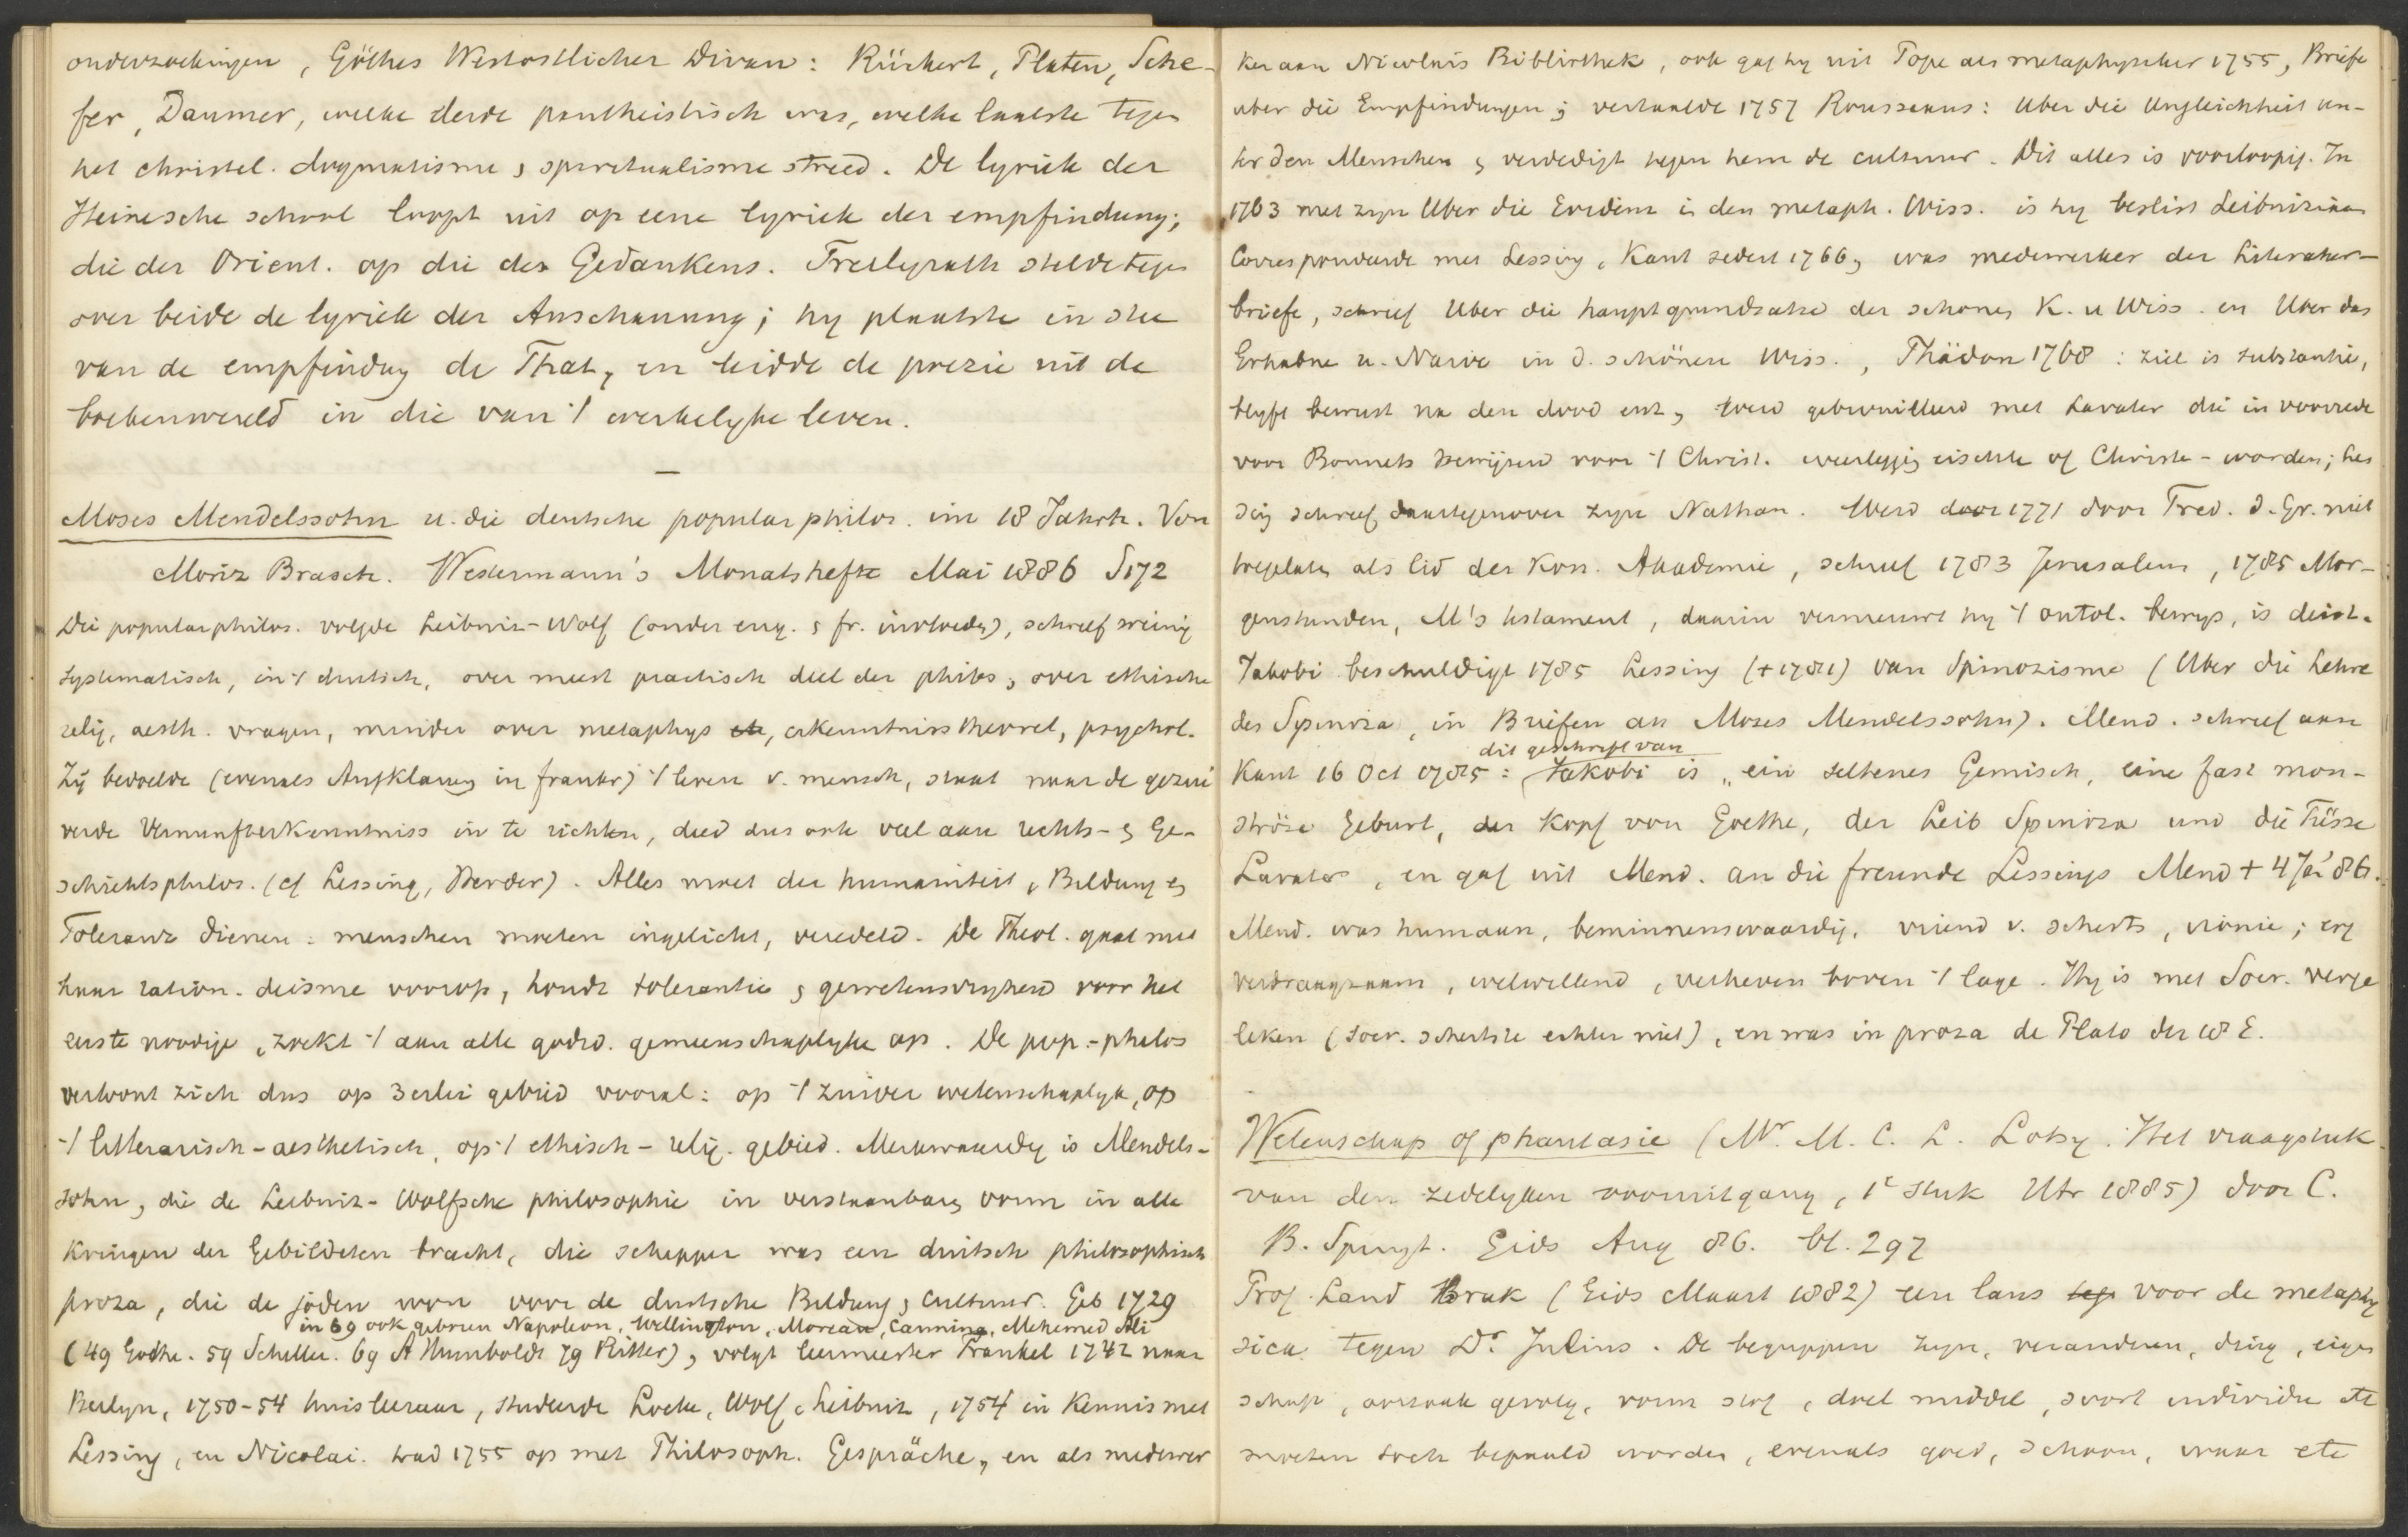 onderzoekingen, Göthes Westostlicher Divan: Rückert, Platen, Sche-
fer, Daumer, welke derde pantheistisch was, welke laatste tegen
het christel. dogmatisme & spiritualisme streed. De lyriek der
Heinesche school loopt uit op eene lyriek der empfindung;
die der Orient. op die des Gedankens. Freiligrath stelde tegen
over beide de lyriek der Anschauung; hy plaatste in stee
van de empfindung de That, en leidde de poezie uit de
boekenwereld in die van 't werkelyke leven.
—
Moses Mendelssohn u. die deutsche popular philos. im 18 Jahrh. Von
Moriz Brasch. Westermann's Monatshefte Mai 1886 S172
Die popularphilos. volgde Leibniz-Wolf (onder eng. & fr. invloeden), schreef weinig
systematisch, in 't duitsch, over meest practisch deel der philos, over ethische
relig, aesth. vragen, minder over metaphys etc, erkenntnisstheorel, psychol.
Zij bedoelde (evenals Aufklarung in frankr) 't leven v. mensch, staat naar de gezui
verde Vernunfterkenntniss in te richten, deed dus ook veel aan rechts- & Ge-
schichtsphilos. (cf Lessing, Herder). Alles moet der humaniteit, Bildung &
Toleranz dienen: menschen moeten ingelicht, veredeld. De Theol. gaat met
haar ration. deisme voorop, houdt tolerantie & gewetensvryheid voor het
eerste noodige, zoekt 't aan alle godsd. gemeenschaplyke op. De pop.-philos
vertoont zich dus op 3erlei gebied vooral: op 't zuiver wetenschaplyk, op
't litterarisch-aesthetisch, op 't ethisch-relig. gebied. Merkwaardig is Mendels-
sohn, die de Leibniz-Wolfsche philosophie in verstaanbaren vorm in alle
Kringen der Gebildeten bracht, die schepper was een duitsch philosophisch
proza, die de joden won voor de duitsche Bildung & cultuur. Geb 1729
in 69 ook geboren Napoleon, Wellington, Moreau, Canning, Mehemed Ali
(49 Gothe. 59 Schiller. 69 A Humboldt 79 Ritter), volgt leermeester Frankel 1742 naar
Berlyn, 1750-54 huisleeraar, studeerde Locke, Wolf, Leibniz, 1754 in Kennis met
Lessing, en Nicolai. trad 1755 op met Philosoph. Gespräche, en als medewer
ker aan Nicolais Bibliothek, ook gaf hy uit Pope als metaphysiker 1755, Briefe
uber die Empfindungen; vertaalde 1757 Rousseaus: Uber die Ungleichheit un-
ter den Menschen & verdedigt tegen hem de cultuur. Dit alles is voorloopig. In
1763 met zyn Uber die Evidenz in den metaph. Wiss. is hy beslist Leibniziaan
Correspondeerde met Lessing, Kant sedert 1766, was medewerker der Literatur-
briefe, schreef Uber die hauptgrundsatze der schonen K. u Wiss. en Uber das
Erhabne u. Naive in d. schönen Wiss., Phädon 1768: ziel is substantie,
blyft bewust na den dood enz, werd gebrouilleerd met Lavater die in voorrede
voor Bonnets bewijzen voor 't Christ. weerlegging eischte of Christen-worden; Les
sing schreef daartegenover zyn Nathan. Werd door 1771 door Fred. d. Gr. niet
toegelaten als lid der Kon. Akademie, schreef 1783 Jerusalem, 1785 Mor-
genstunden, M's testament, daarin vernieuwt hy 't ontol. bewys, is deist.
Jakobi beschuldigt 1785 Lessing (+1781) van Spinozisme (Uber die Lehre
des Spinoza, in Briefen an Moses Mendelssohn). Mend. schreef aan
dit geschrift van
Kant 16 Oct 1785: Jakobi is „ein seltenes Gemisch, eine fast mon-
ströse Geburt, der Kopf von Goethe, der Leib Spinoza und die Füsse
Lavater, en gaf uit Mend. an die freunde Lessings Mend + 4 Jan 86.
Mend. was humaan, beminnenswaardig, vriend v. scherts, ironie; erg
verdraagzaam, welwillend, verheven boven 't lage. Hy is met Socr. verge
leken (Socr. schertste echter niet), en was in proza de Plato der 18 E.
Wetenschap of phantasie (Mr. M. C. L. Lotsy. Het vraagstuk
van den zedelyken vooruitgang, 1e stuk Utr 1885) door C.
B. Spruyt. Gids Aug 86. bl. 297
Prof. Land brak (Gids Maart 1882) een lans teg voor de metaphy
sica tegen Dr. Julius. De begrippen zyn, veranderen, ding, eigen
schap, oorzaak gevolg, vorm stof, doel middel, soort individu etc
moeten toch bepaald worden, evenals goed, schoon, waar etc